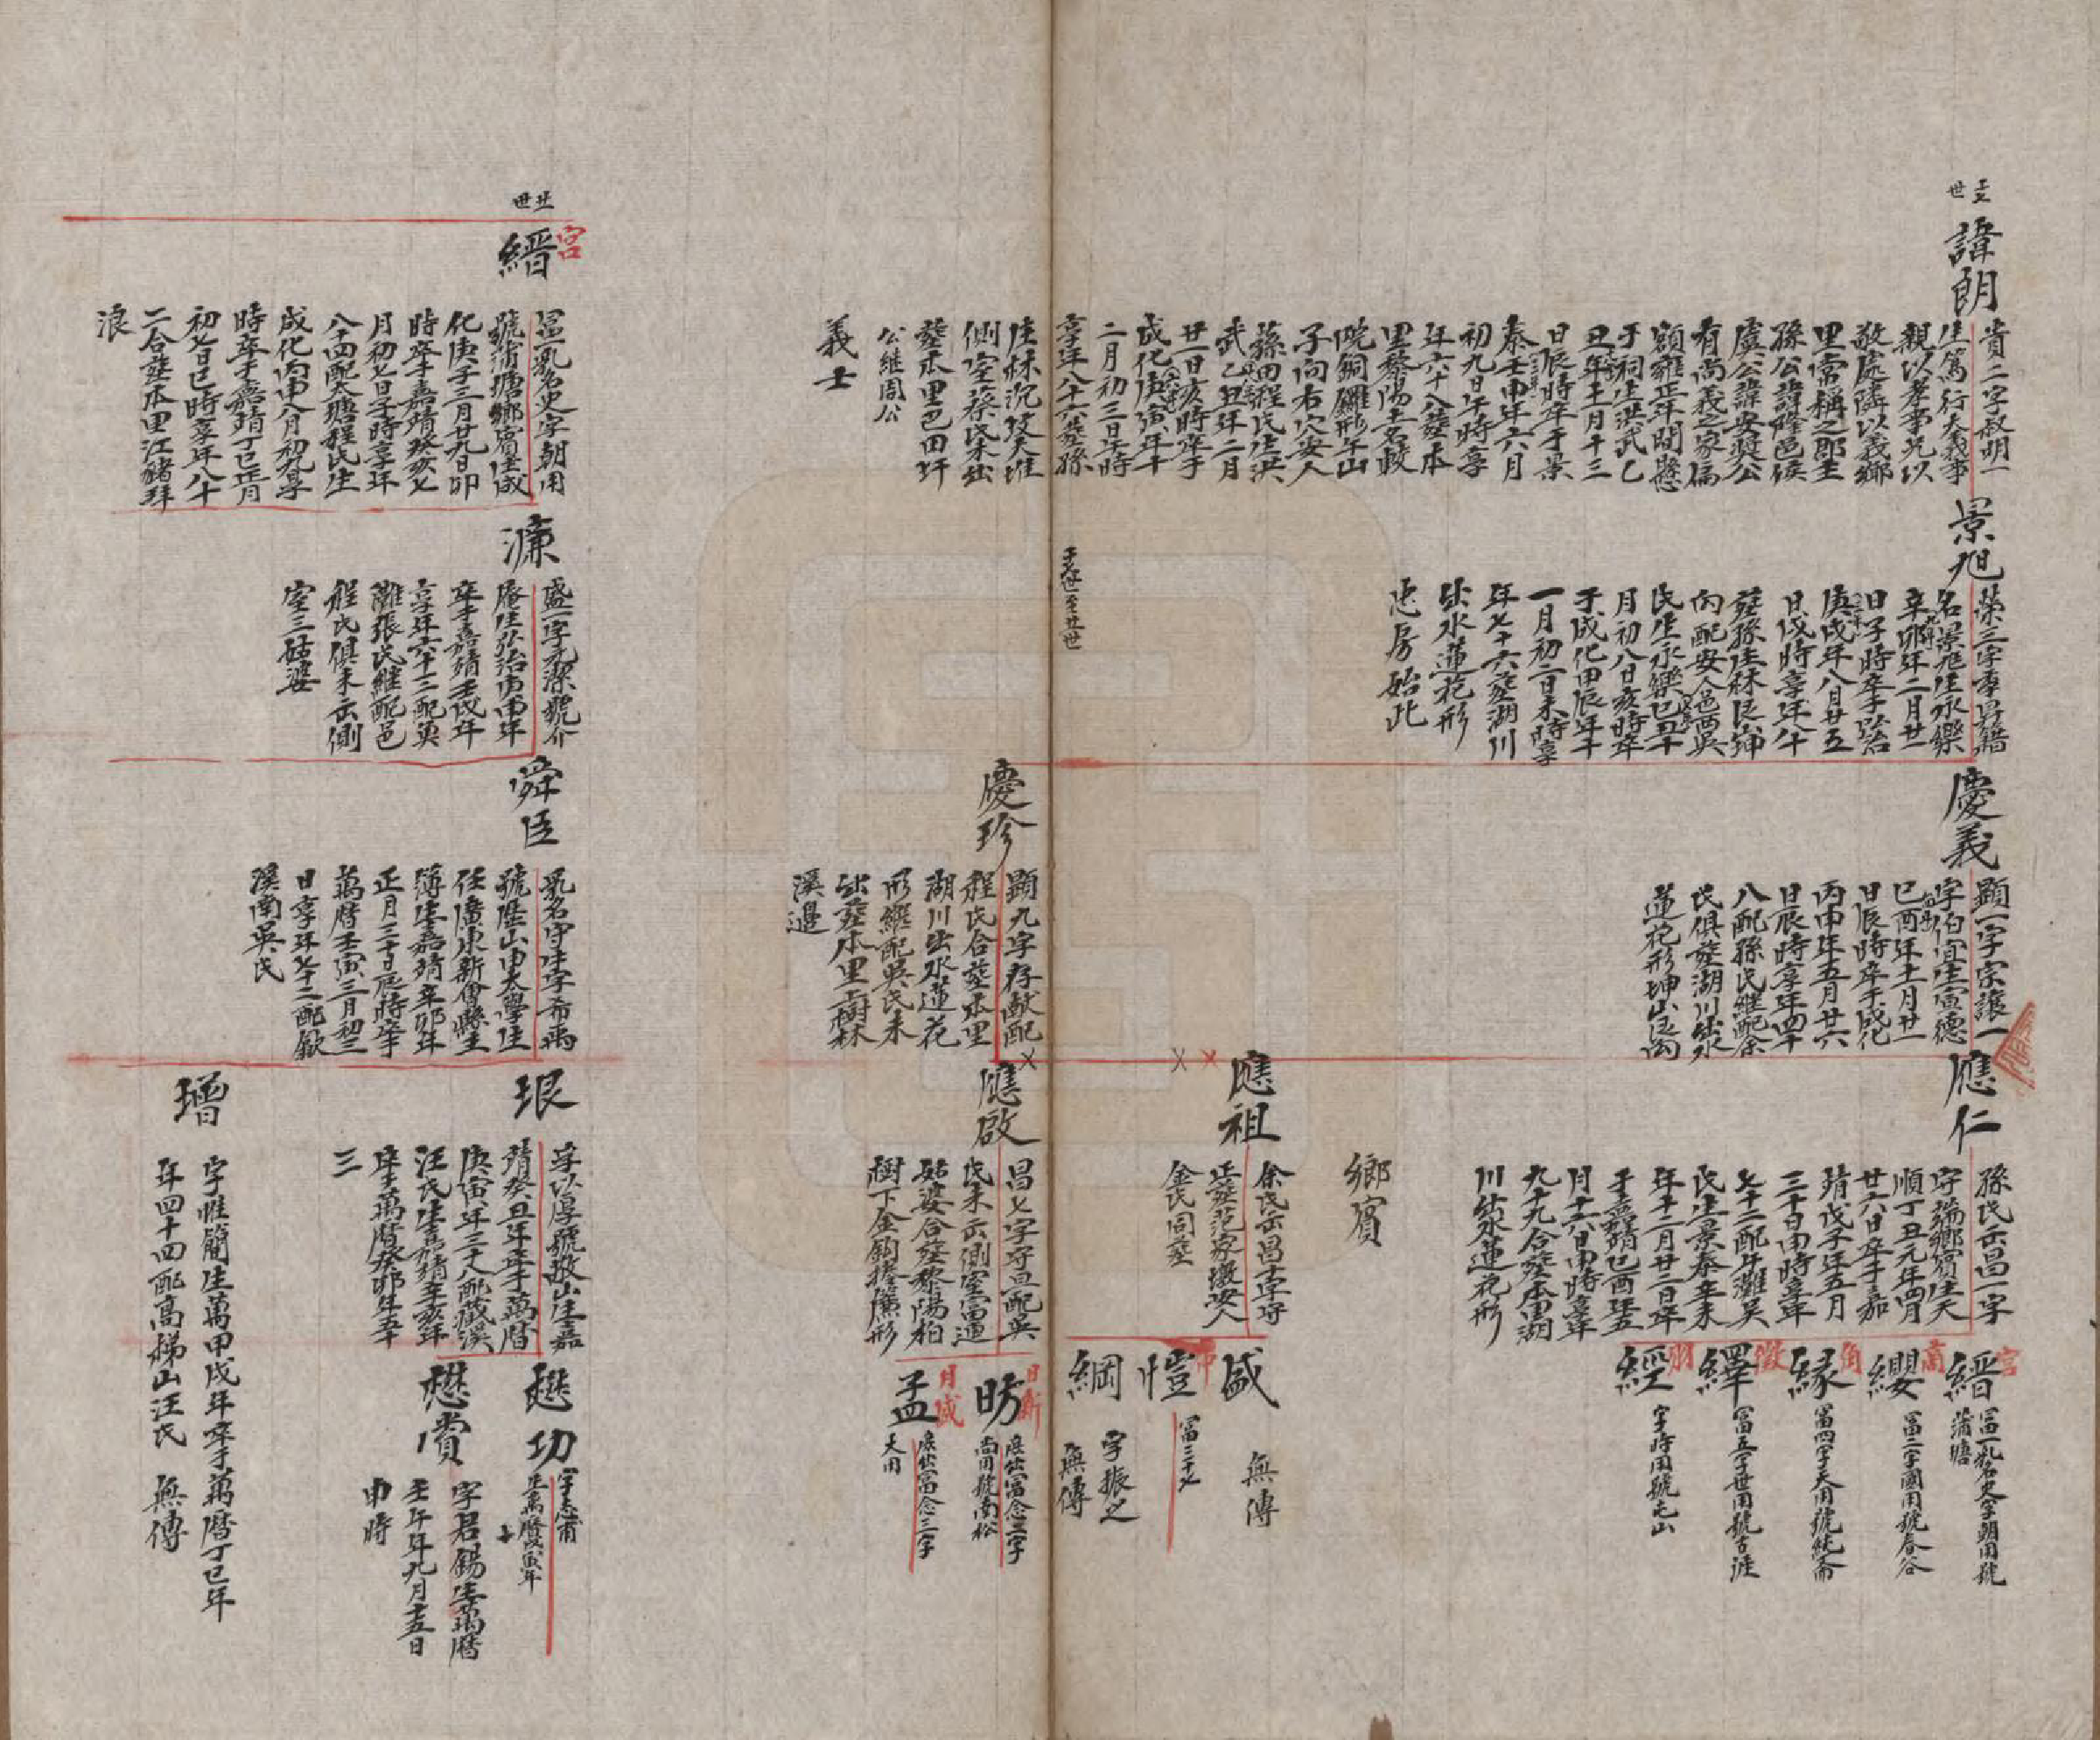 諱朗
貴二字叔明一
生篤行大義事
親以孝事兄以
敬處隣以義鄉
里常稱之郡主
孫公諱隆邑侯
虞公諱安奬公
有尚義之家匾
額雍正年間懸
于祠生洪武乙
丑年十一月十三
日辰時卒于景
泰壬申年六月
初九日午時享
年六十八葬本
里黎陽土名
銅鑼形午山
子向右穴安人
蓀田程氏生洪
武乙丑年二月
廿一日亥時卒于
成化庚寅年十
二月初三日午時
享年八十六葬孫
側室蔡氏未出
葬本里巴田圩
公繼周公
義士
景旭
榮三字季昇籍
名景旭生永樂
辛卯年二月廿一
日子時卒于弘治
庚戌年八月廿五
日戌時享年八十
內配安人邑西吳
氏生永樂己丑十
月初八日亥時卒
于成化甲辰年十
一月初二日未時享
年七十六葬湖川
出水蓮花形
忠房始此
慶義
顯一字宗讓一
字伯宜生宣德
己酉年十一月廿一
日辰時卒于成化
丙申年五月廿六
日辰時享年四十
八配孫氏繼配余
氏俱葬湖川出水
蓮花形坤山艮向
應仁
孫氏出昌一字
字瑞鄉賓生天
順丁丑元年四月
廿六日卒于嘉
靖戊子年五月
三十日申時享年
七十二配牛灘吳
氏生景泰辛未
年十二月廿二日卒
于嘉靖己酉年五
月十六日申時享年
九十九合葬本里湖
川出水蓮花形
鄉賓
宮
縉
富一乳名史字朝用號
蒲塘
商
纓
富二字國用號春谷
角
緣
富四字天用號純齋
徵
繹
富五字世用號古涯
羽
經
字時用號屯山
應祖
余氏出昌
正葬范家墩安人
金氏同葬
盛
無傳
愷
富三十
綱
字振之
無傳
慶珍
顯九字存獻配
程氏合葬本里
湖川出水蓮花
形繼配吳氏未
出葬本里樹林
溪邊
應啟
昌七字守旦配吳
氏未出側室富通
姑婆合葬黎陽柏
樹下金鉤搭簾形
日新
昉
庶出富念二字
尚用號南松
月盛
孟
庶出富念三字
大用
宮
縉
富一乳名史字朝用
號蒲塘鄉賓生成
化庚子三月廿九日卯
時卒于嘉靖癸亥七
月初七日子時享年
八十四配大塘程氏生
成化丙申八月初九享
時卒于嘉靖丁巳正月
初七日巳時享年八十
二合葬本里江豬拜
浪
濂
盛一字元潔號介
庵生弘治年
卒于嘉靖壬戌年
享年六十二配奠
灘張氏繼配邑
程氏俱未出側
室三姑婆
舜臣
乳名守中字希禹
號歷山由太學生
任廣東新會縣主
簿生嘉靖辛卯年
正月三十日辰時卒于
萬曆壬寅三月初三
日享年七十二配歙
溪南吳氏
珢
字以厚號敬山生嘉
靖癸丑年卒于萬曆
庚寅年三十八配葳溪
汪氏生嘉靖辛亥年
卒于萬曆癸卯年五十
三
璔
字惟簡生萬甲戌年卒于萬曆丁巳年
年四十四配高梯山汪氏　無傳
懋功
字志甫
生萬曆庚寅年
懋賞
字君錫生萬曆
壬午年九月十五日
申時